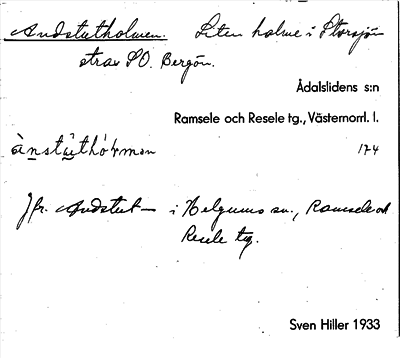 Andstutholmen. Liten holme i Storsjön
strax SO. Bergön.
Ådalslidens s:n
Ramsele och Resele tg., Västernorrl. l.
174
Jfr. Andstut— i Helgums sn., Ramsele och
Resele tg.
Sven Hiller 1933